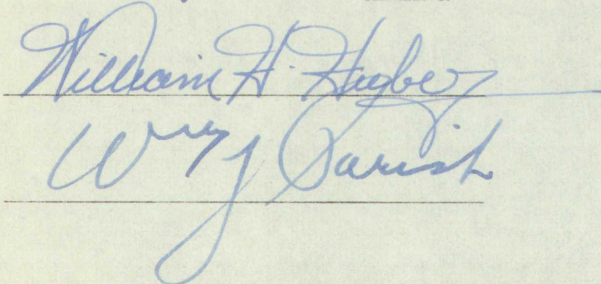 William H. Hughes
Wm J Parish